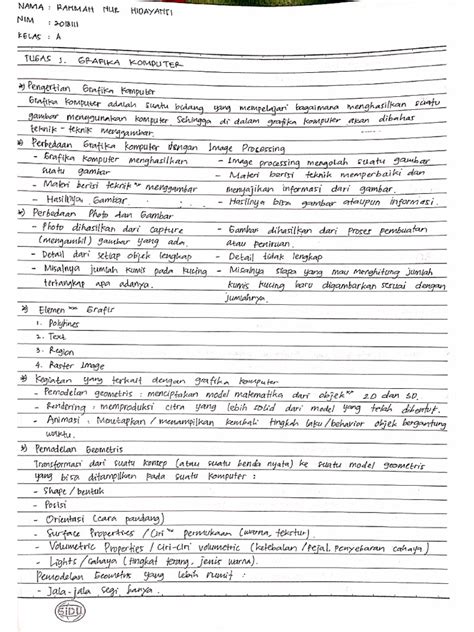 NAMA : RAHMAH NUR HIDAYANTI
NIM :
KELAS : A
TUGAS 1. GRAFIKA KOMPUTER
*) Pengertian Grafika Komputer
Grafika Komputer adalah suatu bidang yang mempelajari bagaimana menghasilkan suatu
gambar menggunakan komputer sehingga di dalam grafika komputer akan dibahas
teknik-teknik menggambar.
*) Perbedaan Grafika Komputer dengan Image Processing
- Grafika komputer menghasilkan
suatu gambar
- Materi berisi teknik menggambar
- Hasilnya Gambar
- Image processing mengolah suatu gambar
- Materi berisi teknik memperbaiki dan
menyajikan informasi dari gambar.
- Hasilnya bisa gambar ataupun informasi.
*) Perbedaan Photo dan Gambar
- Photo dihasilkan dari capture
(mengambil) gambar yang ada.
- Detail dari setiap objek lengkap
- Misalnya jumlah kumis pada kucing
tertangkap apa adanya.
- Gambar dihasilkan dari proses pembuatan
atau peniruan.
- Detail tidak lengkap
- Misalnya siapa yang mau menghitung jumlah
kumis kucing baru digambarkan sesuai dengan
jumlahnya.
*) Elemen ²⁻ Grafis
1. Polylines
2. Text
3. Region
4. Raster Image
*) Kegiatan yang terkait dengan grafika komputer
- Pemodelan geometris : menciptakan model matematika dari objek ²⁻ 2D dan 3D.
- Rendering : memproduksi citra yang lebih solid dari model yang telah dibentuk.
- Animasi : Menetapkan / menampilkan kembali tingkah laku/behavior objek bergantung
waktu.
*) Pemodelan Geometris
Transformasi dari suatu konsep (atau suatu benda nyata) ke suatu model geometris
yang bisa ditampilkan pada suatu komputer :
- Shape / bentuk
- Posisi
- Orientasi (cara pandang)
- Surface Properties / Ciri ²⁻ permukaan (warna, tekstur).
- Volumetric Properties / Ciri-ciri volumetric (ketebalan / pejal, penyebaran cahaya)
- Lights / cahaya (tingkat terang, jenis warna).
Pemodelan Geometris yang lebih rumit :
- Jala-jala segi banyak.
SIDU